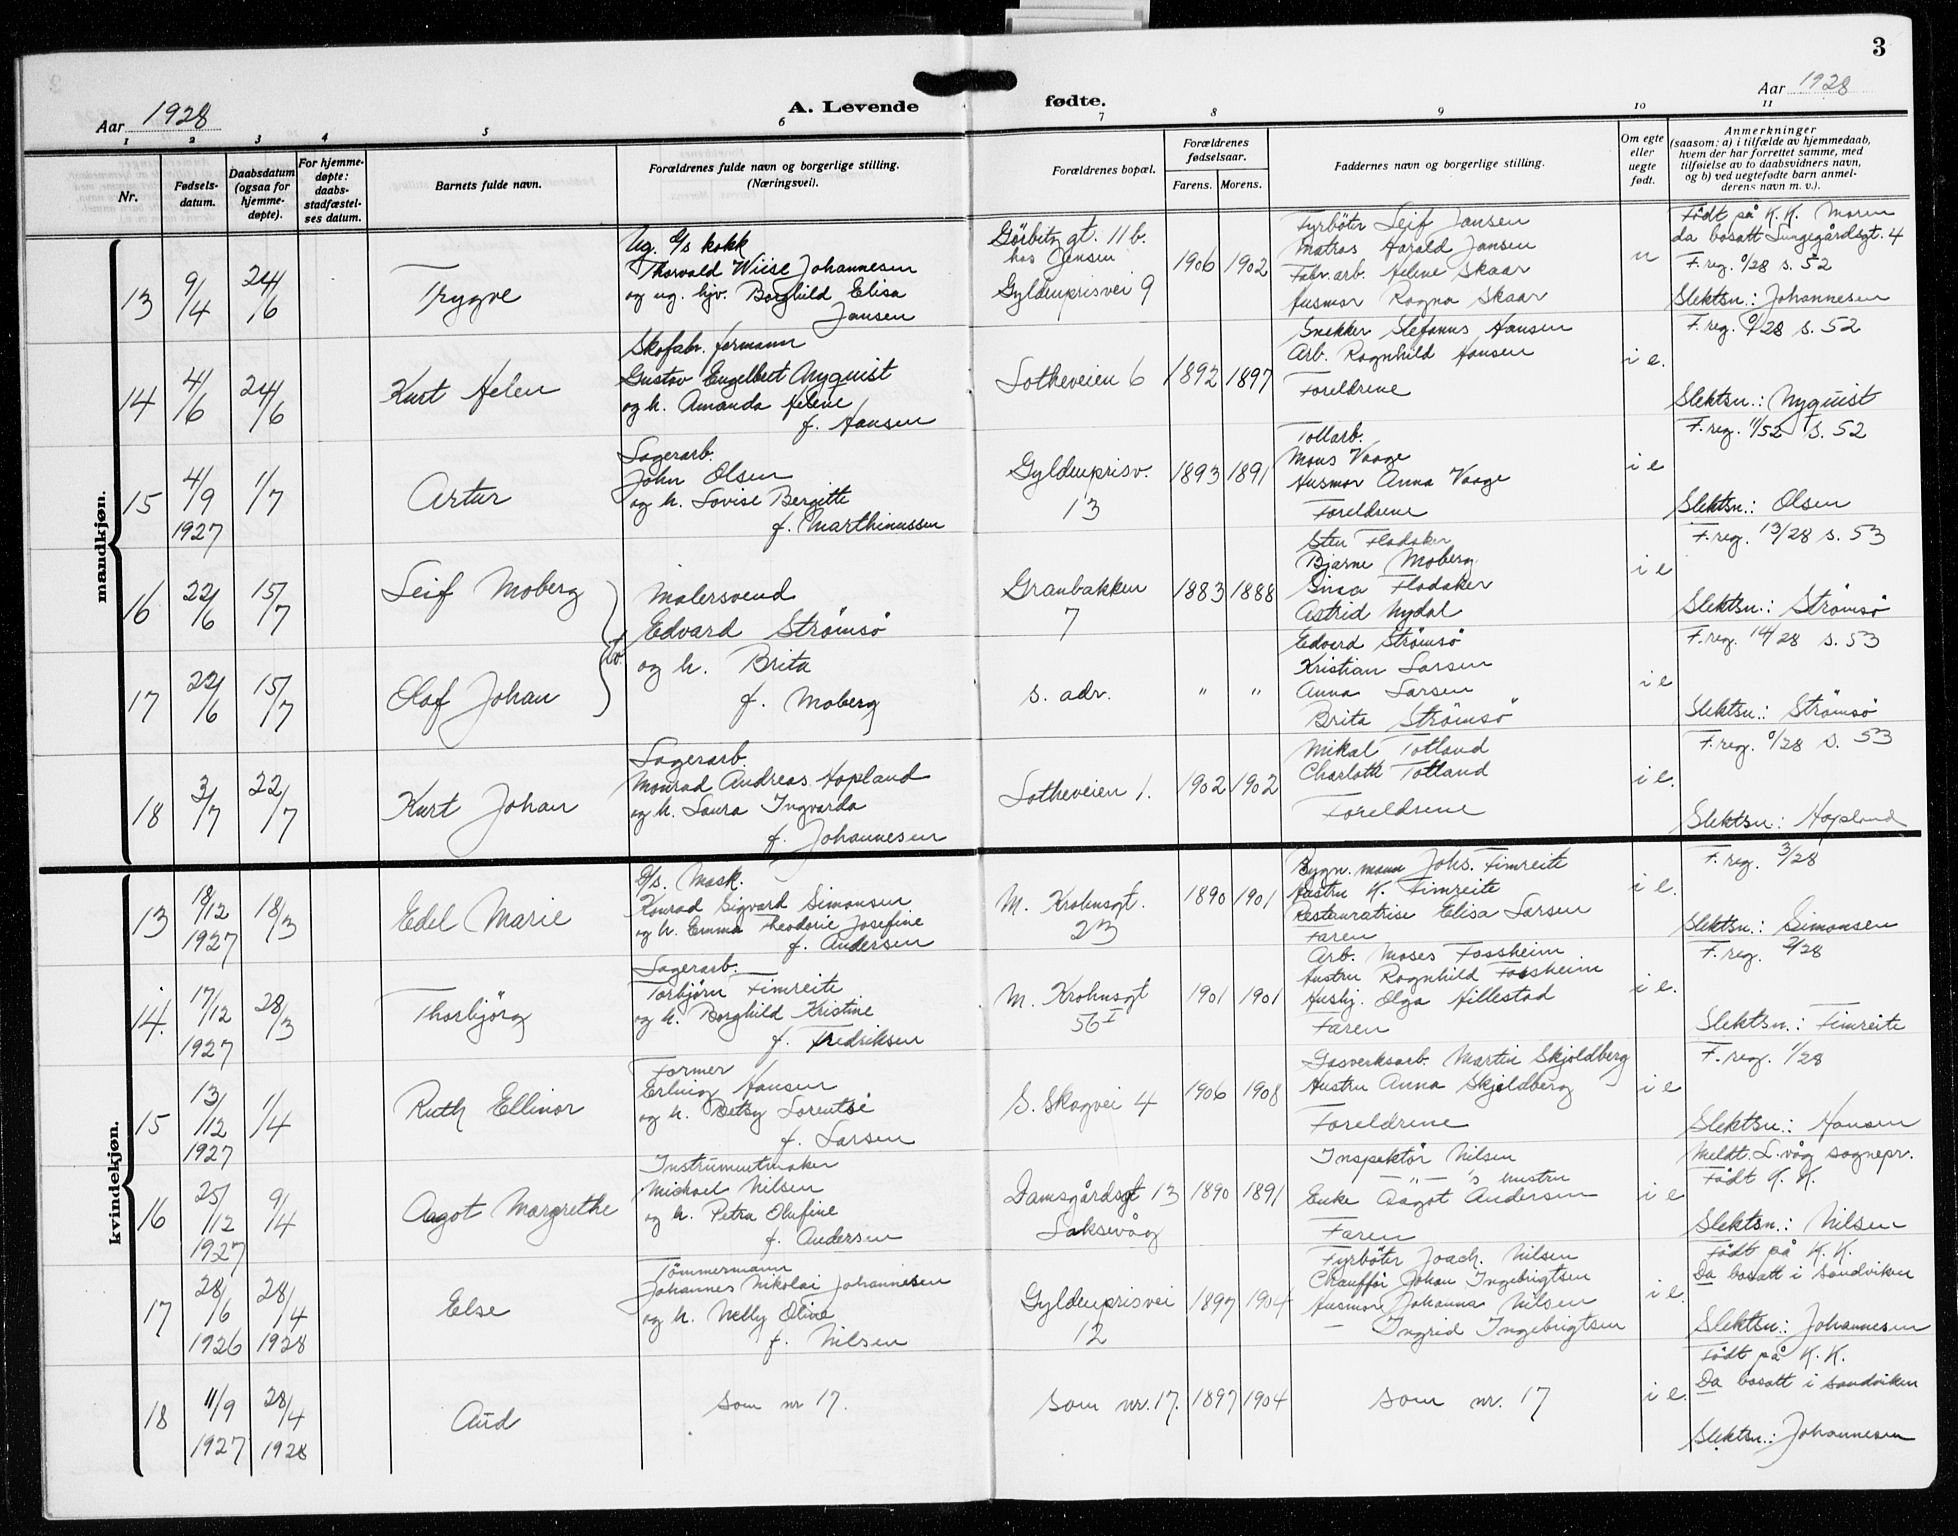 3
Aar 1928
A. Levende fødte.
Aar 1928
1 2 3 4 5 6 7 8 9 10 11
Nr.
Fødsels-
datum.
Daabsdatum
(ogsaa for
hjemme-
døpte).
For hjemme-
døpte:
daabs-
stadfæstel-
ses datum.
Barnets fulde navn.
Forældrenes fulde navn og borgerlige stilling.
(Næringsvei).
Forældrenes bopæl.
Forældrenes
fødselsaar.
Farens. Morens.
Faddernes navn og borgerlige stilling.
Om egte
eller
uegte
født.
Anmerkninger
(saasom: a) i tilfælde av hjemmedaab,
hvem der har forrettet samme, med
tilføielse av to daabsvidners navn,
og b) ved uegtefødte barn anmel-
derens navn m. v.).
mandkjøn.
13
9/4
24/6
Trygve
Ug. G/s kokk
Thorvald Wiise Johannesen
og ug. hjv. Borghild Elisa
Jansen
Görbitz gt. 11 b.
hos Jansen
Gyldenprisvei 9
1906 1902
Fyrböter Leif Jansen
Matros Harald Jansen
Fabr. arb. Helene Skaar
Husmor Ragna Skaar
u
Født på K. K. Moren
da bosatt Lungegårdsgt. 4
F. reg. 0/28 s. 52
Slektsn.: Johannesen
14
4/6
24/6
Kurt Helen
Skofabr. formann
Gustav Engelbert Nyquist
og h. Amanda Helene
f. Hansen
Lotheveien 6
1892 1897
Snekker Stefanus Hansen
Arb. Ragnhild Hansen
Foreldrene
i e.
F. reg. 0/28 s. 52
Slektsn.: Nyquist
15
4/9
1927
1/7
Artur
Lagerarb.
John Olsen
og h. Lovise Bergitte
f. Marthinussen
Gyldenprisv.
13
1893 1891
Tollarb.
Mons Vaage
Husmor Anna Vaage
Foreldrene
i e
F. reg. 11/52 s. 52
Slektsn.: Olsen
16
22/6
15/7
Leif Moberg
Malersvend
Edvard Strømsø
og h. Brita
f. Moberg
Granbakken
7
1883 1888
Sten Flodaker
Bjarne Moberg
Flodaker
Astrid Nydal
i e
F. reg. 13/28 s. 53
Slektsn.: Strømsø
17
22/6
15/7
Olaf Johan
s. adr.
" "
Edvard Strømsø
Kristian Larsen
Anna Larsen
Brita Strømsø
i e
F. reg. 14/28 s. 53
Slektsn.: Strømsø
18
3/7
22/7
Kurt Johan
Lagerarb.
Monrad Andreas Hopland
og h. Laura Ingvarda
f. Johannesen
Lotheveien 1.
1902 1902
Mikal Totland
Charlotte Totland
Foreldrene
i e.
F. reg. 0/28 s. 53
Slektsn.: Hopland
kvindekjøn.
13
18/12
1927
18/3
Edel Marie
G/s. Mask.
Konrad Sigvard Simonsen
og h. Emma Theodorie Josefine
f. Andersen
M. Krohnsgt.
23
1890 1901
Bygn. mann Johs. Fimreite
Hustru K. Fimreite
Restauratrise Elisa Larsen
Faren
i e.
F. reg. 3/28
Slektsn.: Simonsen
14.
17/12
1927
28/3
Thorbjörg
Lagerarb.
Torbjørn Fimreite
og h. Borghild Kristine
f. Fredriksen
M. Krohnsgt
56 I
1901 1901
Arb. Moses Fossheim
Hustru Ragnhild Fossheim
Hushj. Olga Hillestad
Faren
i e.
F. reg. 2/28
Slektsn.: Fimreite
15
13/12
1927
1/4
Ruth Ellinor
Former
Erling Hansen
og h. Betsy Lorentse
f. Larsen
S. Skogvei 4
1906 1908
Gasverksarb. Martin Skjoldberg
Hustru Anna Skjoldberg
Foreldrene
i e
F. reg. 1/28
Slektsn.: Hansen
16
25/12
1927
9/4
Aagot Margrethe
Instrumentmaker
Michael Nilsen
og h. Petra Olufine
f. Andersen
Damsgårdsgt 13
Laksevåg
1890 1891
Inspektör Nilsen
— " — 's hustru
Enke Aagot Andersen
Faren
i e
Meldt. L.våg sognepr.
Født K. K.
Slektsn.: Nilsen
17
28/6
1926
28/4
1928
Else
Tömmermann
Johannes Nikolai Johannesen
og h. Nelly Olive
f. Nilsen
Gyldenprisvei
12
1897 1904
Fyrböter Joach. Nilsen
Chaufför Johan Ingebrigtsen
Husmor Johanna Nilsen
— Ingrid Ingebrigtsen
i e.
Født på K. K.
Da bosatt i Sandviken
Slektsn.: Johannesen
18
11/9
1927
28/4
1928
Aud
Som nr 17.
Som nr. 17.
1897 1904
Som nr. 17
i e.
Født på K. K.
Da bosatt i Sandviken
Slektsn.: Johannesen